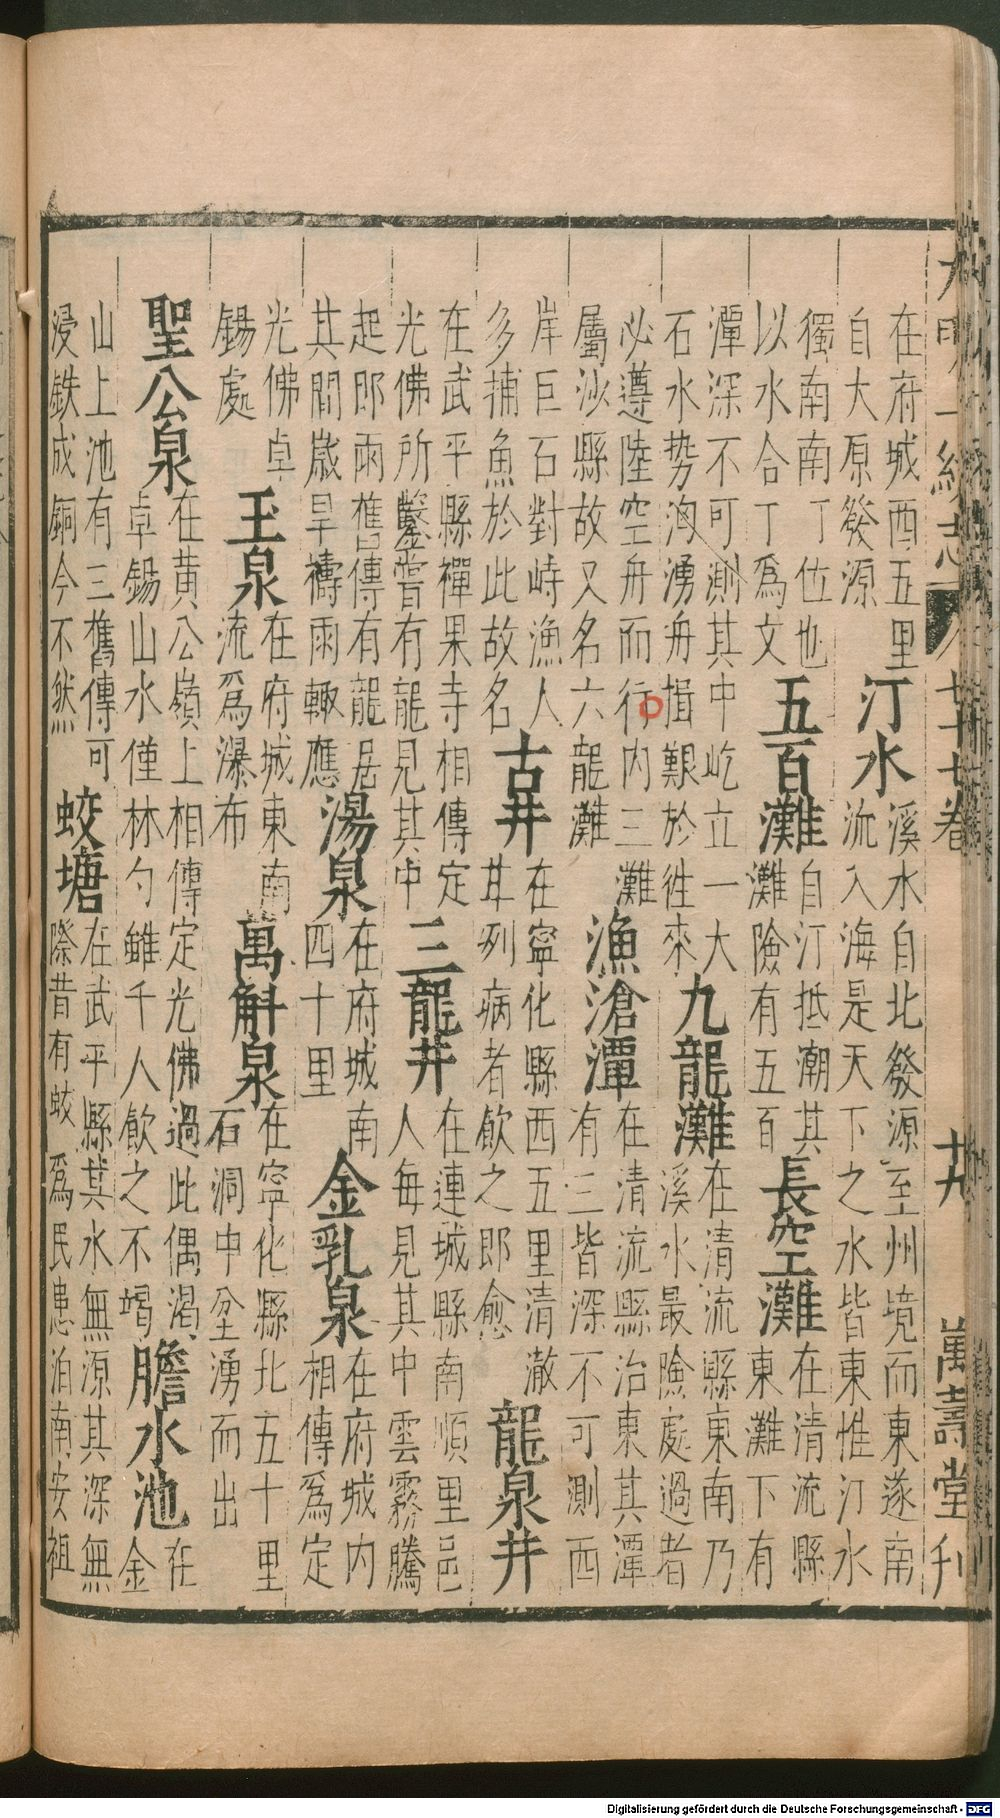 大明一統志 八 七十七卷 廿九 萬壽堂刋
在府城西五里
自大原發源
汀水
溪水自北發源至州境而東遂南
流入海是天下之水皆東惟汀水
獨南南丁位也
以水合丁為文
五百灘
自汀抵潮其
灘險有五百
長空灘
在清流縣
東灘下有
潭深不可測其中屹立一大
石水势洶湧舟揖艱於徃來
九龍灘
在清流縣東南乃
溪水最險處過者
必遵陸空舟而行内三灘
屬沙縣故又名六龍灘
漁滄潭
在清流縣治東其潭
有三皆深不可測西
岸巨石對峙漁人
多捕魚於此故名
古井
在寧化縣西五里清澈
甘列病者飲之即愈
龍泉井
在武平縣禪果寺相傳定
光佛所鑿嘗有龍見其中
三龍井
在連城縣南順里邑
人每見其中雲霧騰
起郎雨舊傳有龍居
其間歲旱禱雨輙應
湯泉
在府城南
四十里
金乳泉
在府城内
相傳為定
光佛卓
錫處
玉泉
在府城東南
流為瀑布
萬斛泉
在寧化縣北五十里
石洞中坌湧而出
聖公泉
在黄公嶺上相傳定光佛過此偶渴
卓錫山水僅林勺雖千人飲之不竭
膽水池
在
金
山上池有三舊傳可
浸鉄成銅今不然
蛟塘
在武平縣其水無源其深無
際昔有蛟為民患泊南安祖
Digitalisierung gefördert durch die Deutsche Forschungsgemeinschaft - DFG